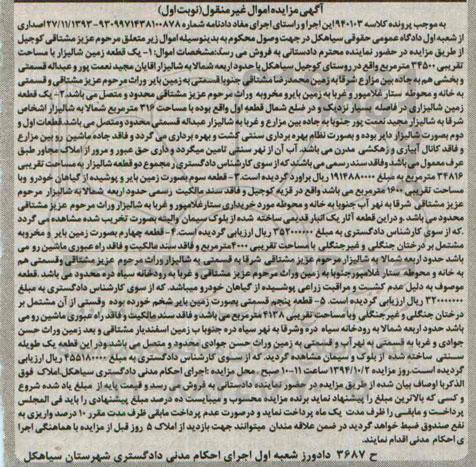 آگهی مزایده اموال غیر منقول (نوبت اول)
به موجب پرونده کلاسه 940103 این اجرا و راستای اجرای مفاد دادنامه شماره 9309971438100878-27/11/1393 اصداری
از شعبه اول دادگاه عمومی حقوقی سیاهکل در جهت وصول محکوم به بدینوسیله اموال زیر متعلق مرحوم عزیز مشتاقی کوجیل
از طریق مزایده در حضور نماینده محترم دادستانی به فروش می رسد: مشخصات اموال: 1- یک قطعه زمین شالیزار با مساحت
تقریبی 34500 مترمربع واقع در روستای کوجیل سیاهکل با حدود اربعه شمالا به شالیزار اقایان مجید نعمت پور و عبداله قسمتی
و بخشی هم به جاده بین مزارع شرقا به زمین محمدرضا مشتاقی جنوبا قسمتی به زمین بایر وراث مرحوم عزیز مشتاقی و قسمتی
به خانه و محوطه ستار غلامپور و غربا به زمین بایر و مخروبه وراث مرحوم عزیز مشتاقی محدود و متصل می باشد. 2- یک قطعه
زمین شالیزاری در فاصله بسیار نزدیک و در ضلع شمال قطعه اول واقع بوده با مساحت 316 مترمربع شمالا به شالیزار اشخاص
شرقا به شالیزار مجید نعمت پور جنوبا به جاده بین مزارع و غربا به شالیزار عبداله قسمتی محدود ومتصل می باشد. قطعات اول و
دوم بصورت شالیزار دایر بوده و بصورت نظام بهره برداری سنتی کشت و بهره برداری می گردد و فاقد جاده ماشین رو بین مزارع
و فاقد کانال آبیاری و زهکشی مدرن می باشد. آب آن از نهر سنتی تامین میگردد و دارای حق عبور و مرور از املاک مجاور طبق
عرف معمول می باشد. وفاقد سند رسمی می باشند که از سوی کارشناس دادگستری در مجموع دو قطعه شالیزار به مساحت تقریبی
34816 مترمربع به مبلغ 1914880000 ریال براورد گردیده است. 3- قطعه سوم بصورت زمین بایر و پوشیده از گیاهان خودرو وبا
مساحت تقریبی 1600 مترمربع می باشد واقع در قریه کوجیل و فاقد سند مالکیت رسمی حدود اربعه شمالا به شالیزار مرحوم
عزیز مشتاقی شرقا به نهر آب جنوبا به خانه و محوطه مورد خریداری ستار غلامپور و غربا به شالیزار وراث مرحوم عزیز مشتاقی
محدود می باشد. و در این قطعه آثار یک انبار قدیمی ساخته شده از بلوک سیمان والبته بصورت تخریب شده مشاهده می گردد
.که از سوی کارشناس دادگستری به مبلغ 352000000 ریال ارزیابی گردیده است. 4- قطعه چهارم بصورت زمین بایر و مخروبه
مشتمل بر درختان جنگلی و غیرجنگلی با مساحت تقریبی 4000 مترمربع و فاقد سند مالکیت و فاقد راه عبوری ماشین رو می
باشد حدود اربعه شمالا به شالیزار مرحوم عزیز مشتاقی شرقا به قسمتی به شالیزار وراث مرحوم عزیز مشتاقی وقسمتی هم
به خانه و محوطه ستار غلامپور جنوبا به زمین وراث مرحوم عزیز مشتاقی غربا به رودخانه سیاه دره محدود می باشد. قطعه
موصوف به دلیل عدم کشت و مراقبت زراعی پوشیده از گیاهان خودرو میباشد. که از سوی کارشناس دادگستری به مبلغ
320000000 ریال ارزیابی گردیده است. 5- قطعه پنجم قسمتی بصورت زمین بایر شخم خورده بوده وقستی از آن مشتمل بر
درختان جنگلی و غیرجنگلی وبا مساحت تقریبی 4138 مترمربع می باشد. و فاقد سند مالکیت و فاقد راه عبوری ماشین رو می
باشد حدود اربعه شمالا به رودخانه سیاه دره وشرقا به نهر سیاه دره جنوبا ب زمین اسفندیار مشتاقی و بعد زمین وراث حسن
جوادی و غربا به قسمتی به نهر آب و قسمتی به زمین وراث حسن جوادی محدود و متصل می باشد. در این قطعه یک طویله
سنتی ساخته شده از بلوک سیمان مشاهده گردید. که از سوی کارشناس دادگستری به مبلغ 455180000 ریال ارزیابی
گردیده است. روز مزایده 1394/10/2 ساعت 11-10 صبح . محل مزایده :اجرای احکام مدنی دادگستری سیاهکل. املاک فوق
الذکر با اوصاف بیان شده از طریق مزایده در حضور نماینده دادستانی به فروش می رسد و قیمت پایه از مبلغ یاد شده شروع
و کسی که بالاترین مبلغ را پیشنهاد نماید برنده مزایده محسوب و میبایست ده درصد مبلغ پیشنهادی را باید فی المجلس
پرداخت و مابقی را ظرف مدت یک ماه پرداخت نماید و درصورت عدم پرداخت مابقی ظرف مدت مقرر 10 درصد واریزی به
نفع صندوق ضبط خواهد گردید در ضمن علاقه مندان میتوانند جهت بازدید از املاک 5 روز قبل از مزایده با هماهنگی اجرا
ی احکام مدنی اقدام نمایند.
ح 3687 دادورز شعبه اول اجرای احکام مدنی دادگستری شهرستان سیاهکل